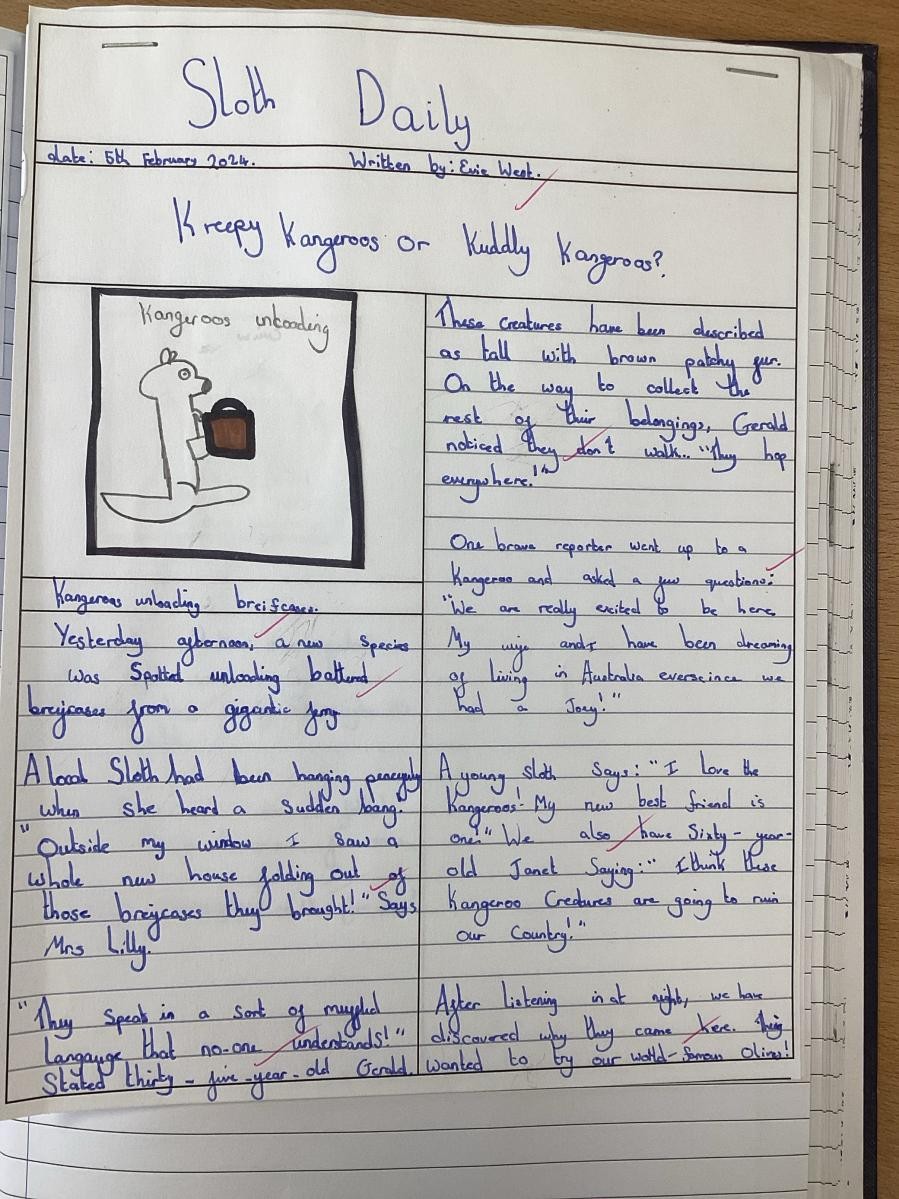 Sloth Daily
date: 5th February 2024. Written by: Evie West.
Kreepy Kangeroos or Kuddly Kangeroos?
Kangeroos unloading
Kangeroos unloading breifcases.
Yesterday afternoon, a new Species
was Spotted unloading battered
breifcases from a gigantic ferry
A local Sloth had been hanging peacefully
when she heard a sudden bang.
"Outside my window I saw a
whole new house folding out of
those breifcases they brought!" Says
Mrs Lilly.
"They Speak in a sort of muffled
langauge that no-one understands!"
Stated thirty-five-year-old Gerald.
These creatures have been described
as tall with brown patchy fur.
On the way to collect the
rest of their belongings, Gerald
noticed they don't walk.. "They hop
everywhere!"
One brave reporter went up to a
Kangeroo and asked a few questions:
"We are really excited to be here.
My wife and I have been dreaming
of living in Australia everseince we
had a Joey!"
A young sloth Says: "I love the
Kangeroos! My new best friend is
one!" We also have Sixty-year-
old Janet Saying:" I think these
Kangeroo Creatures are going to ruin
our Country!"
After listening in at night, we have
discovered why they came here. They
wanted to try our world-famous Olives!